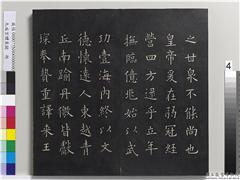 之甘泉不能尚也
皇帝爰在弱冠經
營四方逮乎立年
撫臨億兆始以武
功壹海內終以文
德懷遠人東越青
丘南踰丹徼皆獻
琛奉贄重譯來王
4